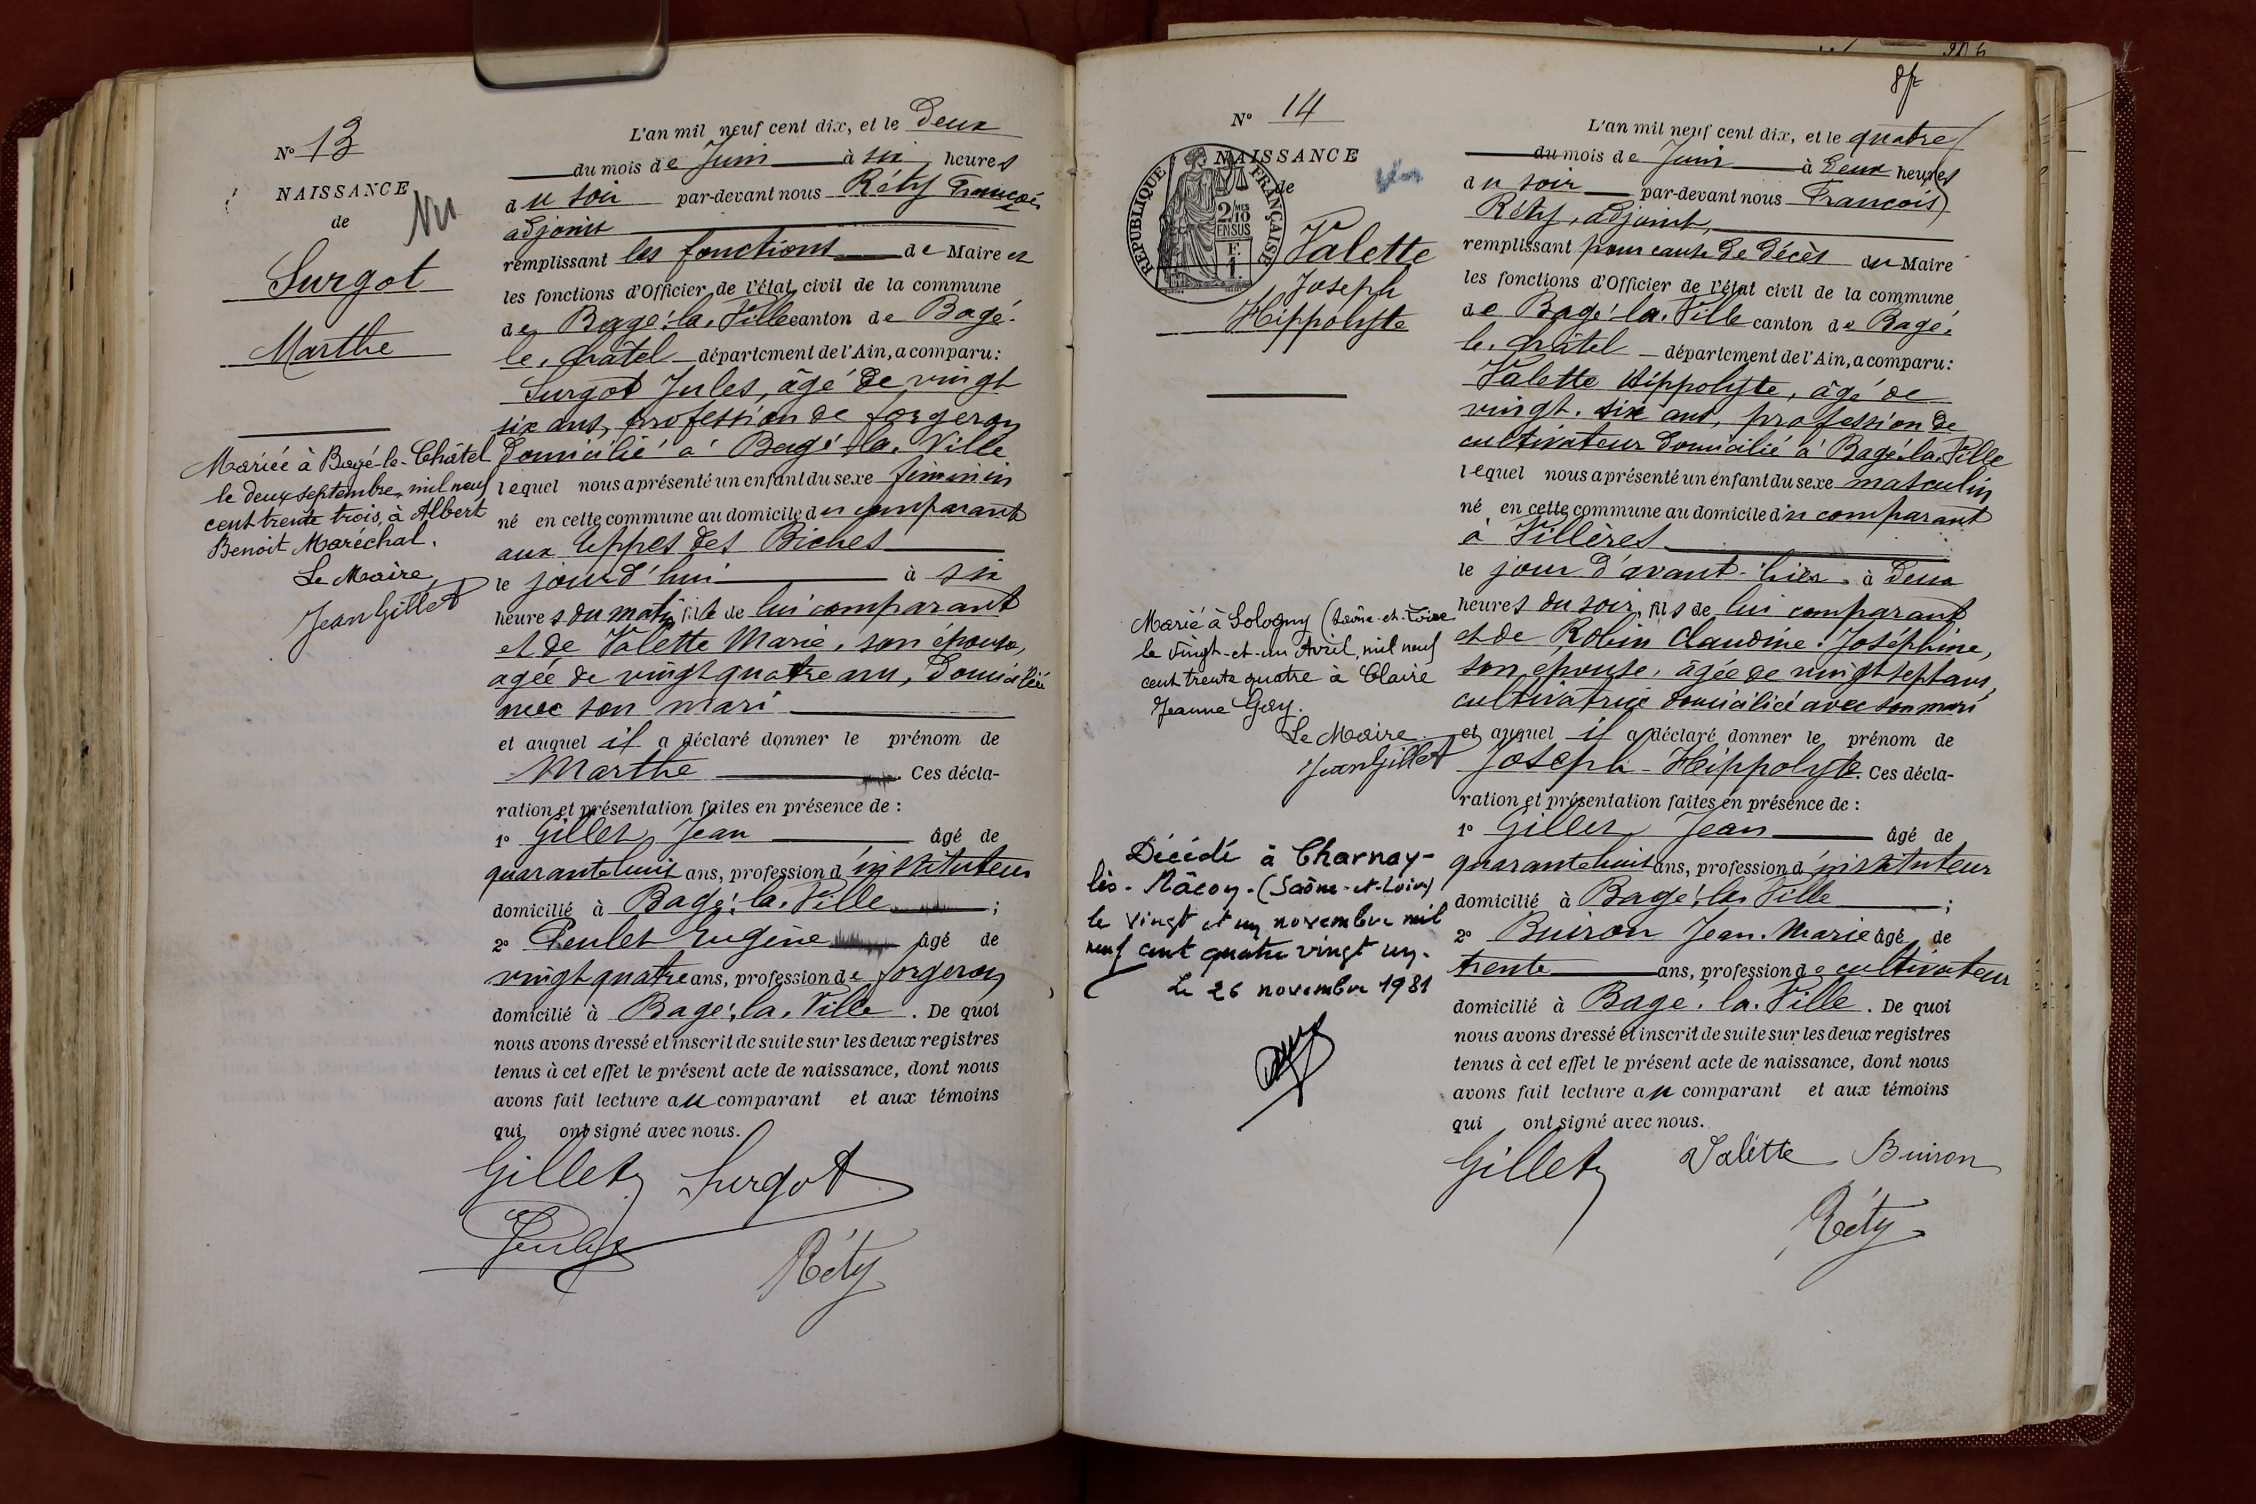 N° 13
NAISSANCE
de
Surgot
Marthe
Mariée à Bagé-le-Châtel
le deux septembre, mil neuf
cent trente trois, à Albert
Benoit Maréchal.
Le Maire,
Jean Gillet
L'an mil neuf cent dix, et le Deux
du mois de Juin à six heures
du soir par-devant nous Réty François
adjoint
remplissant les fonctions de Maire et
les fonctions d'Officier de l'état civil de la commune
de Bagé-la-Ville canton de Bagé-
le-Châtel département de l'Ain, a comparu:
Surgot Jules, âgé de vingt
six ans, profession de forgeron
domicilié à Bagé-la-Ville
lequel nous a présenté un enfant du sexe féminin
né en cette commune au domicile du comparant
aux Eppes des Biches
le jourd'hui à six
heures du matin fille de lui comparant
et de Valette Marie, son épouse,
agée de vingt quatre ans, domiciliée
avec son mari
et auquel il a déclaré donner le prénom de
Marthe Ces décla-
ration et présentation faites en présence de :
1° Gillet Jean âgé de
quarante huit ans, profession d'instituteur
domicilié à Bagé-la-Ville ;
2° Peulet Eugène âgé de
vingt quatre ans, profession de forgeron
domicilié à Bagé-la-Ville. De quoi
nous avons dressé et inscrit de suite sur les deux registres
tenus à cet effet le présent acte de naissance, dont nous
avons fait lecture au comparant et aux témoins
qui ont signé avec nous.
Gillet Surgot
Peulet
Réty
N° 14
NAISSANCE
de
RÉPUBLIQUE FRANÇAISE
2/10 MES
EN SUS
F.
1.
Valette
Joseph
Hippolyte
Marié à Sologny (Saône-et-Loire
le vingt-et-un Avril, mil neuf
cent trente quatre à Claire
Jeanne Gay.
Le Maire
Jean Gillet
Décédé à Charnay-
lès-Mâcon-(Saône-et-Loire)
le vingt et un novembre mil
neuf cent quatre vingt un.
Le 26 novembre 1981
L'an mil neuf cent dix, et le quatre
du mois de Juin à Deux heures
du soir par-devant nous François
Réty, adjoint,
remplissant pour cause de décès du Maire
les fonctions d'Officier de l'état civil de la commune
de Bagé-la-Ville canton de Bagé-
le-Châtel département de l'Ain, a comparu:
Valette Hippolyte, âgé de
vingt-six ans, profession de
cultivateur domicilié à Bagé-la-Ville
lequel nous a présenté un enfant du sexe masculin
né en cette commune au domicile du comparant
à Villères
le jour d'avant-hier à Deux
heures du soir, fils de lui comparant
et de Robin Claudine-Joséphine,
son épouse, agée de vingt sept ans,
cultivatrice domiciliée avec son mari
et auquel il a déclaré donner le prénom de
Joseph-Hippolyte. Ces décla-
ration et présentation faites en présence de :
1° Gillet Jean âgé de
quarante huit ans, profession d'instituteur
domicilié à Bagé-la-Ville ;
2° Buiron Jean-Marie âgé de
trente ans, profession de cultivateur
domicilié à Bagé-la-Ville. De quoi
nous avons dressé et inscrit de suite sur les deux registres
tenus à cet effet le présent acte de naissance, dont nous
avons fait lecture au comparant et aux témoins
qui ont signé avec nous.
Gillet Valette Buiron
Réty